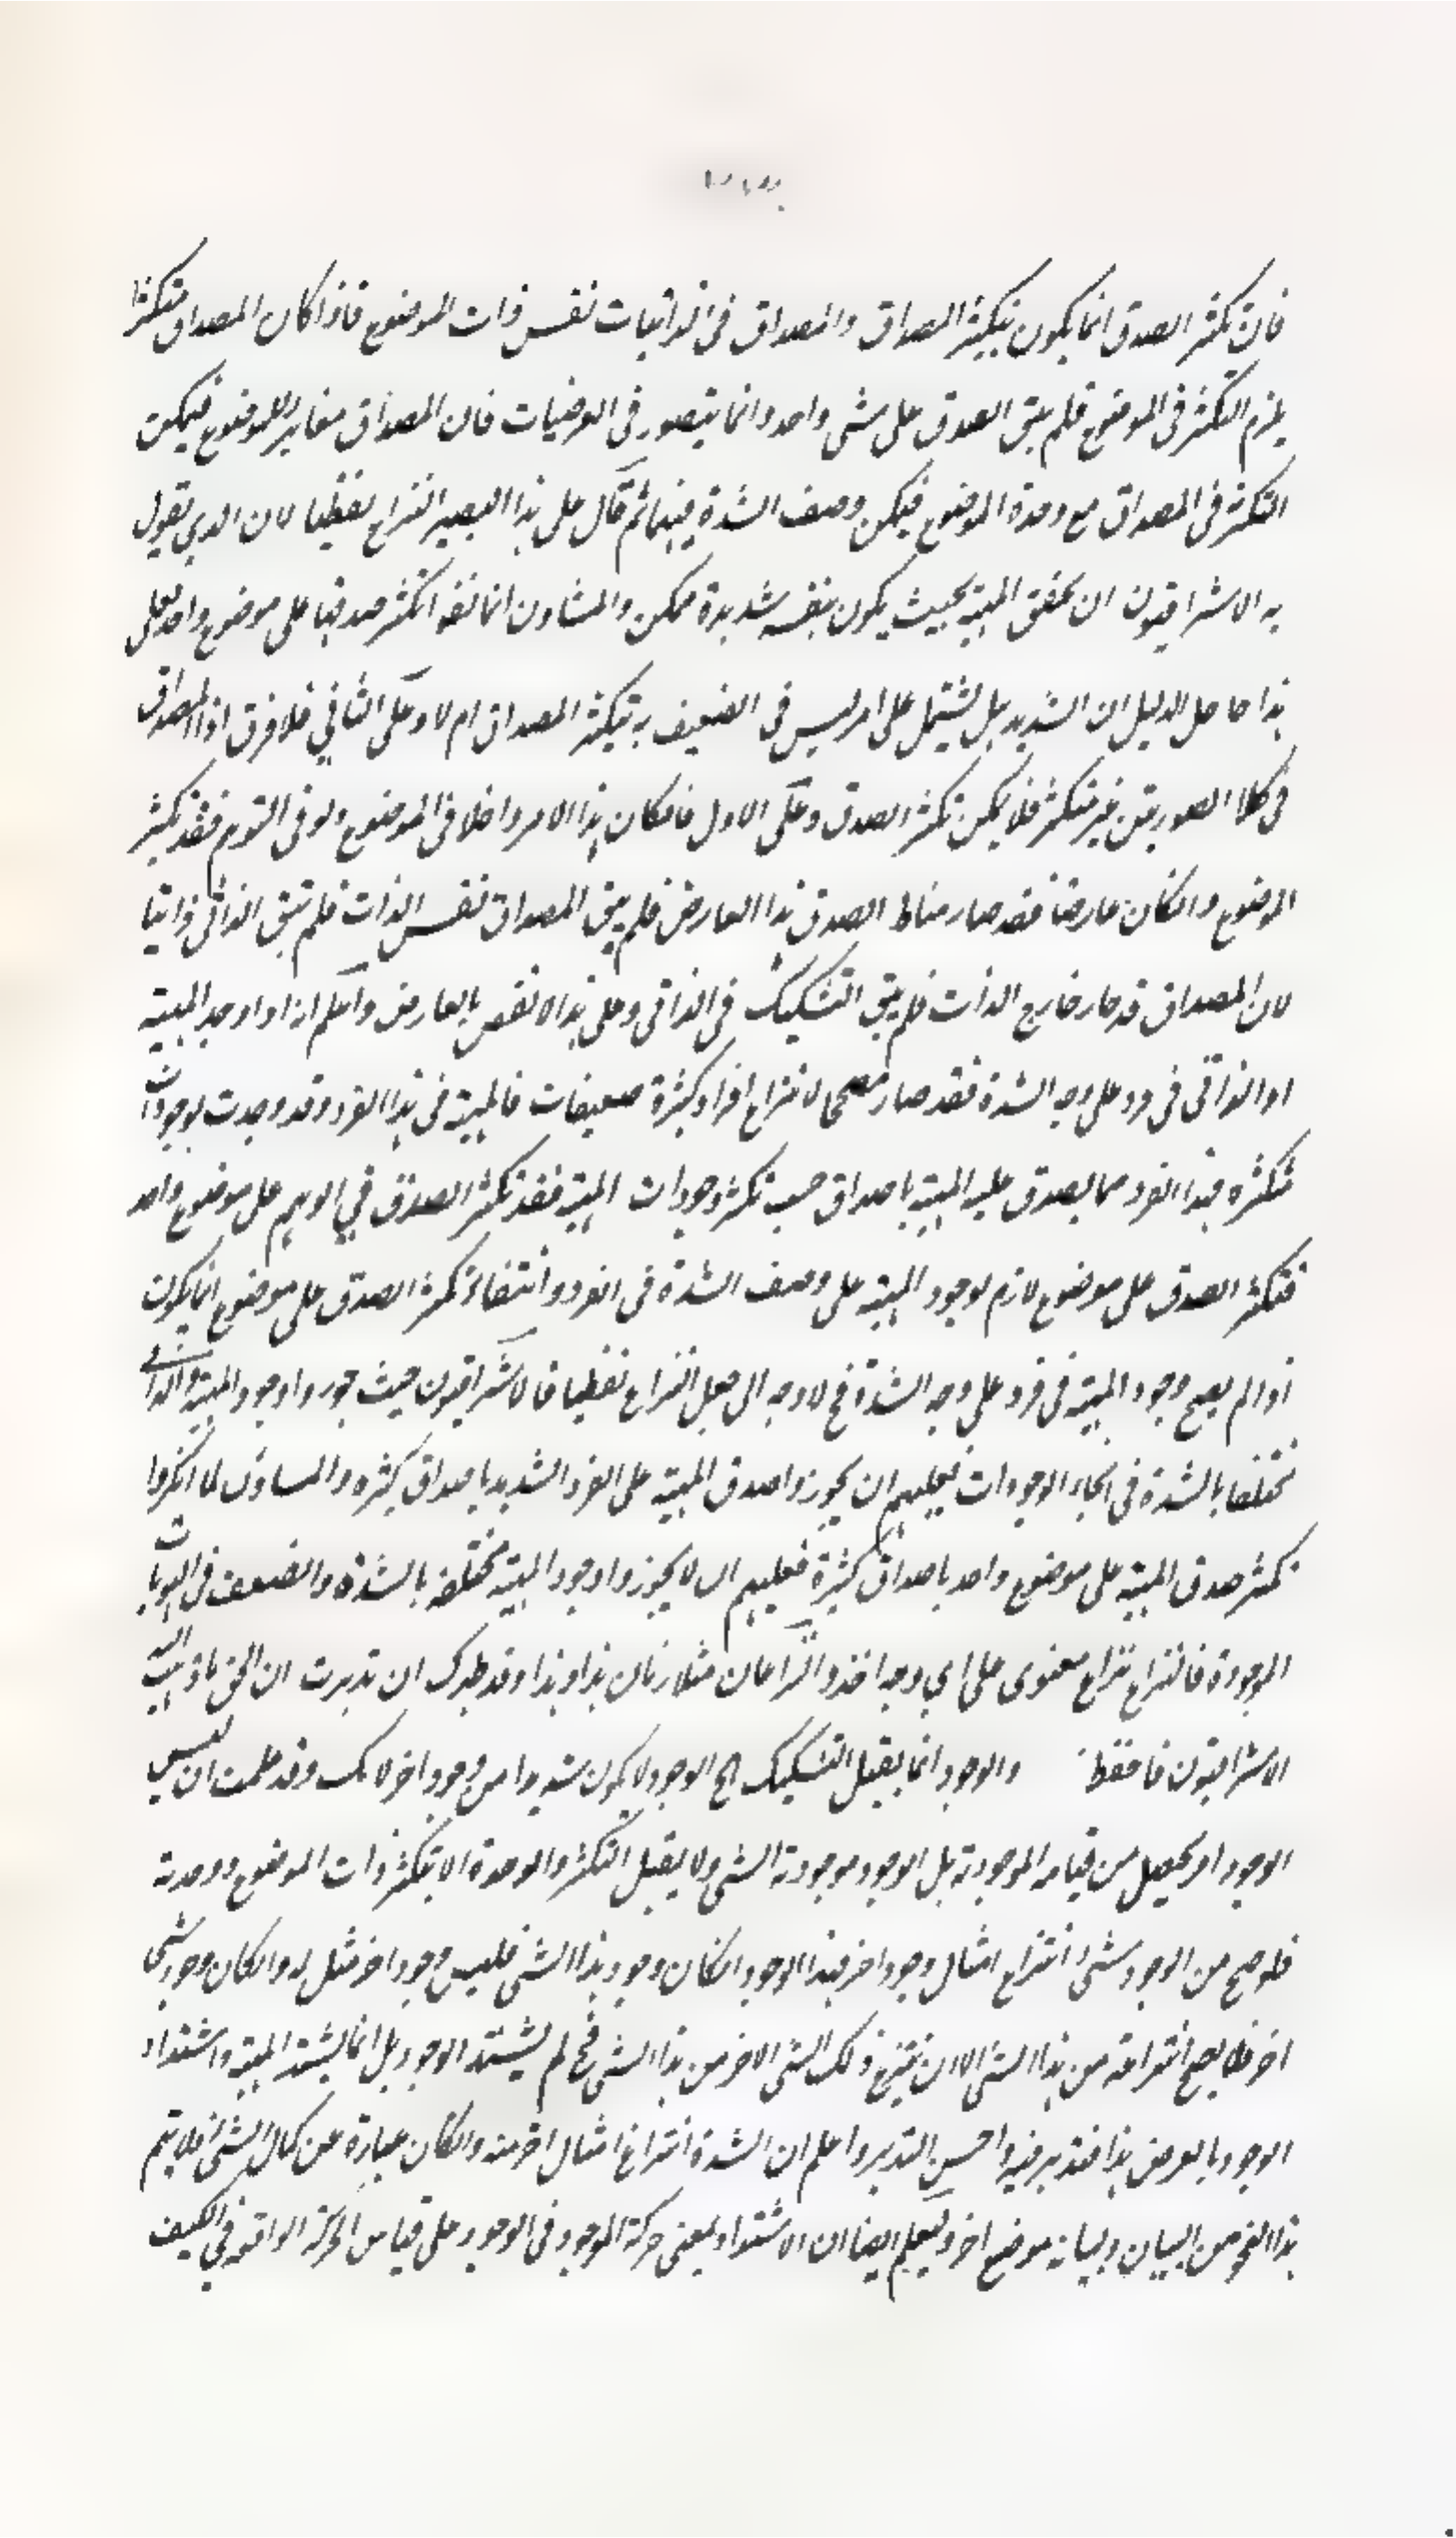 فان تكثر الصدق انما يكون بتكثر المصداق والمصداق فى الذاتيات نفس ذات الموضوع فاذا كان المصداق متكثرا
يلزم التكثر فى الموضوع فلم يبق الصدق على شى واحد وانما يتصور فى العرضيات فان المصداق مغاير للموضوع فيمكن
التكثر فى المصداق مع وحدة الموضوع فيمكن وصف الشدة فيها ثم قال على هذا يصير النزاع لفظيا لان الذي يقول
به الاشراقيون ان تحقق المهية بحيث يكون بنفسه شديدة ممكن والمشاؤن انما نفوا تكثر صدقها على موضوع واحد
هذا حاصل الدليل ان الشديد هل يشتمل على امر ليس فى الضعيف به يتكثر المصداق ام لا وعلى الثاني فلا فرق اذ المصداق
فى كلا الصورتين غير متكثر فلا يمكن تكثر الصدق وعلى الاول فامكان هذا الامر داخلا فى الموضوع ولو فى التوهم فقد تكثر
الموضوع وانكان عارضا فقد صار مناط الصدق هذا العارض فلم يبق المصداق نفس الذات فلم يبق الذاتى ذاتيا
لان المصداق قد صار خارج الذات فلم يبق التشكيك فى الذاتى وعلى هذا لا نقض بالعارض واعلم انه اذا وجد المهية
او الذاتى فى فرد على وجه الشدة فقد صار مصححا لانتزاع افراد كثيرة ضعيفات فالمهية فى هذا الفرد وقد وجدت بوجودات
متكثره فهذا الفرد مما يصدق عليه المهية باصداق حسب تكثر وجودات المهية فقد تكثر الصدق في الوهم على موضوع واحد
فتكثر الصدق على موضوع لازم لوجود المهية على وصف الشدة فى الفرد وانتفاء تكثر الصدق على موضوع انما يكون
اذا لم يصح وجود المهية فى فرد على وجه الشدة فح لا وجه الى جعل النزاع لفظيا فالاشراقيون حيث جوزوا وجود المهية والذاتي
مختلفا بالشدة فى انحاء الوجودات فعليهم ان يجوزوا صدق المهية على الفرد الشديد باصداق كثيره والمشاؤن لما انكروا
تكثر صدق المهية على موضوع واحد باصداق كثيرة فعليهم ان لا يجوزوا وجود المهية مختلفة بالشدة والضعف فى الهويات
الموجودة فالنزاع نزاع معنوى على اي وجه اخذ والنزاعان متلازمان هذا وهذا وقد ظهر لك ان تدبرت ان الحق ما ذهب اليه
الاشراقيون فاحفظ والوجود انما يقبل التشكيك الخ الوجود لا يكون شديدا من وجود اخر لانك وقد علمت ان ليس
الوجود امر يحصل من قيامه الموجودية بل الوجود موجودية الشى ولا يقبل التكثر والوحدة الا بتكثر ذات الموضوع ووحدته
فلو صح من الوجود شى انتزاع امثال وجود اخر فهذا الوجود انكان وجود هذا الشى فليس وجود اخر مثل له وانكان وجود شى
اخر فلا يصح انتزاعه من هذا الشى الا ان ينتزع ذلك الشى الاخر من هذا الشى فح لم يشتد الوجود بل انما يشتد المهية واشتداد
الوجود بالعرض هذا فتدبر فيه احسن التدبر واعلم ان الشدة انتزاع امثال اخر منه وانكان عبارة عن كمال الشى فلا يتم
هذا النحو من البيان وبيانه موضع اخر وليعلم ايضا ان الاشتداد بمعنى حركة الموجود فى الوجود على قياس الحركة الواقعه في الكيف